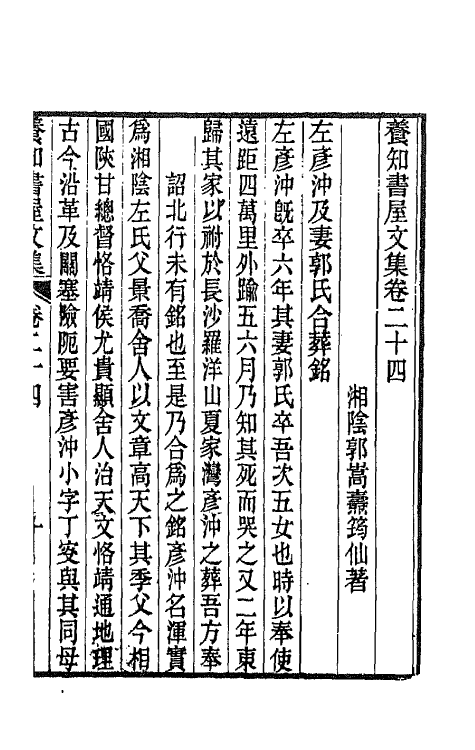 養知書屋文集卷二十四
湘陰郭嵩燾筠仙著
左彥沖及妻郭氏合葬銘
左彥沖旣卒六年其妻郭氏卒吾次五女也時以奉使
遠距四萬里外踰五六月乃知其死而哭之又二年東
歸其家以祔於長沙羅洋山夏家灣彥沖之葬吾方奉
詔北行未有銘也至是乃合爲之銘彥沖名渾實
爲湘陰左氏父景喬舍人以文章高天下其季父今相
國陝甘總督恪靖侯尤貴顯舍人治天文恪靖通地理
古今沿革及關塞險阨要害彥沖小字丁叜與其同母
養知書屋文集
卷二十四
一